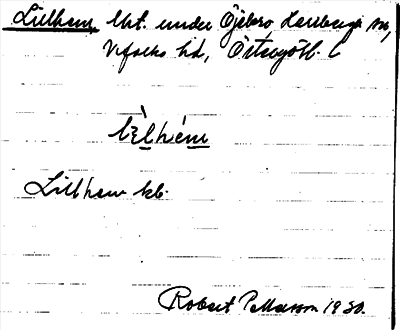 Lillhem, lht. under Öjebro, Harstorps sn,
Vifolka hd, Östergötl. l
lìlhém
Lillhem kb.
Robert Pettersson 1930.